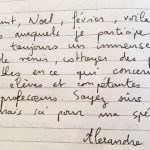 int, Noel, février, avril
auxquels je participe
toujours un immense
de venir, cottoyer des p
bles, en ce qui concern
élèves et compétantes
professeurs. Soyez sûrs
rais ici pour une spé
Alexandre